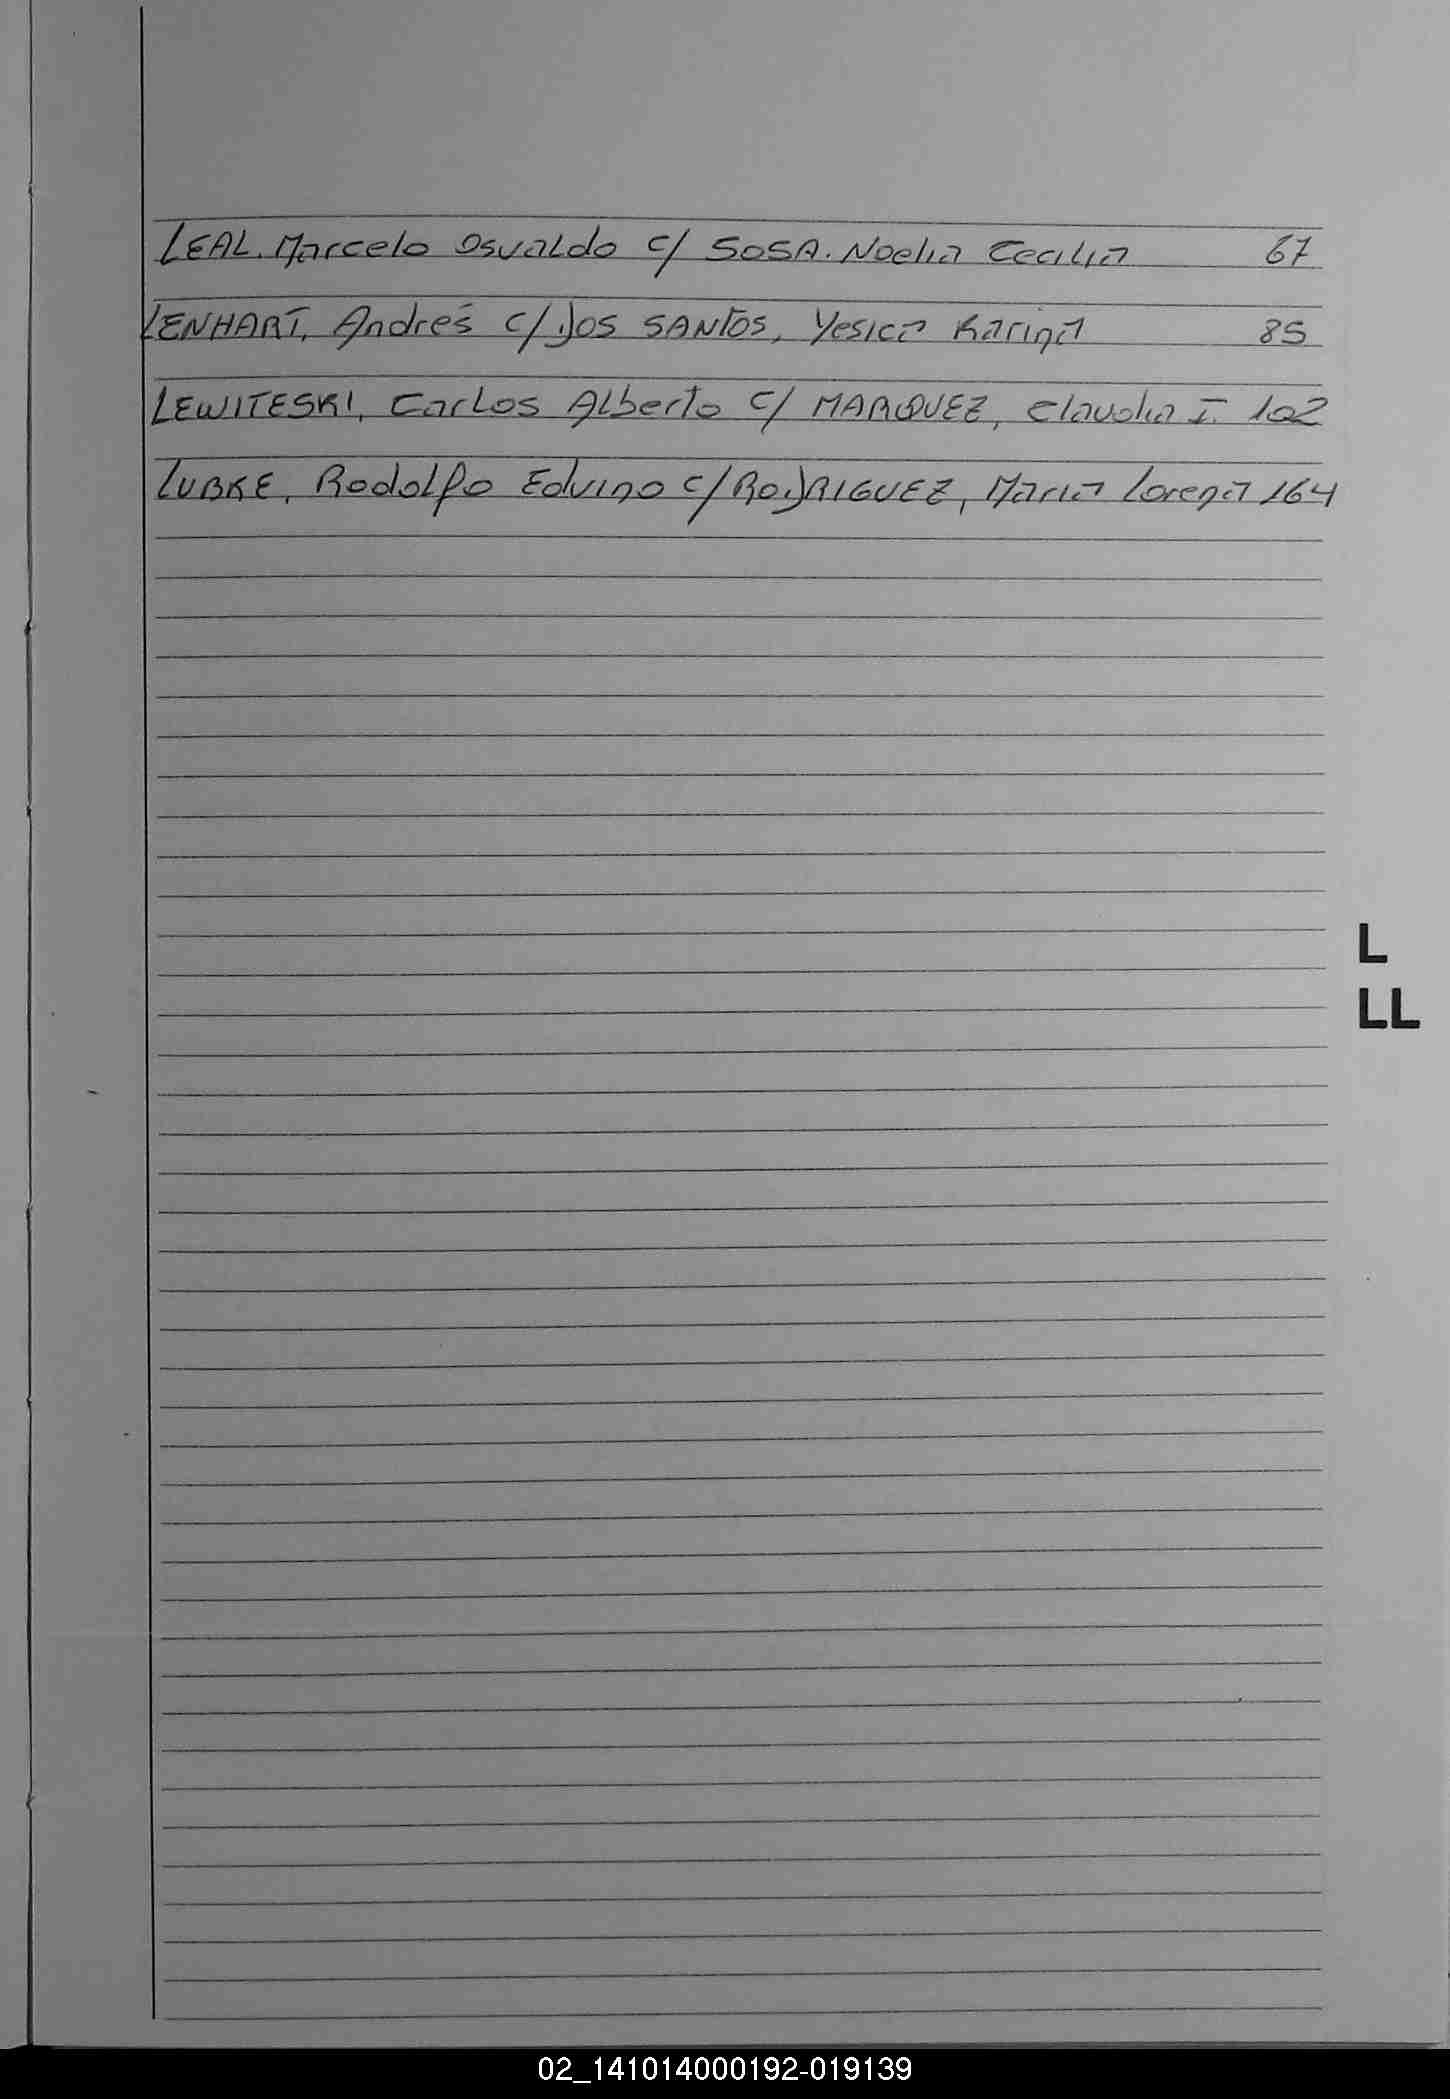 LEAL. Marcelo Osvaldo c/ SOSA. Noelia Cecilia 67
LENHART, Andrés c/ DOS SANTOS, Yesica Karina 85
LEWITESKI, Carlos Alberto c/ MARQUEZ, Claudia I. 102
LUBKE, Rodolfo Edvino c/ RODRIGUEZ, Maria Lorena 164
L
LL
02_141014000192-019139